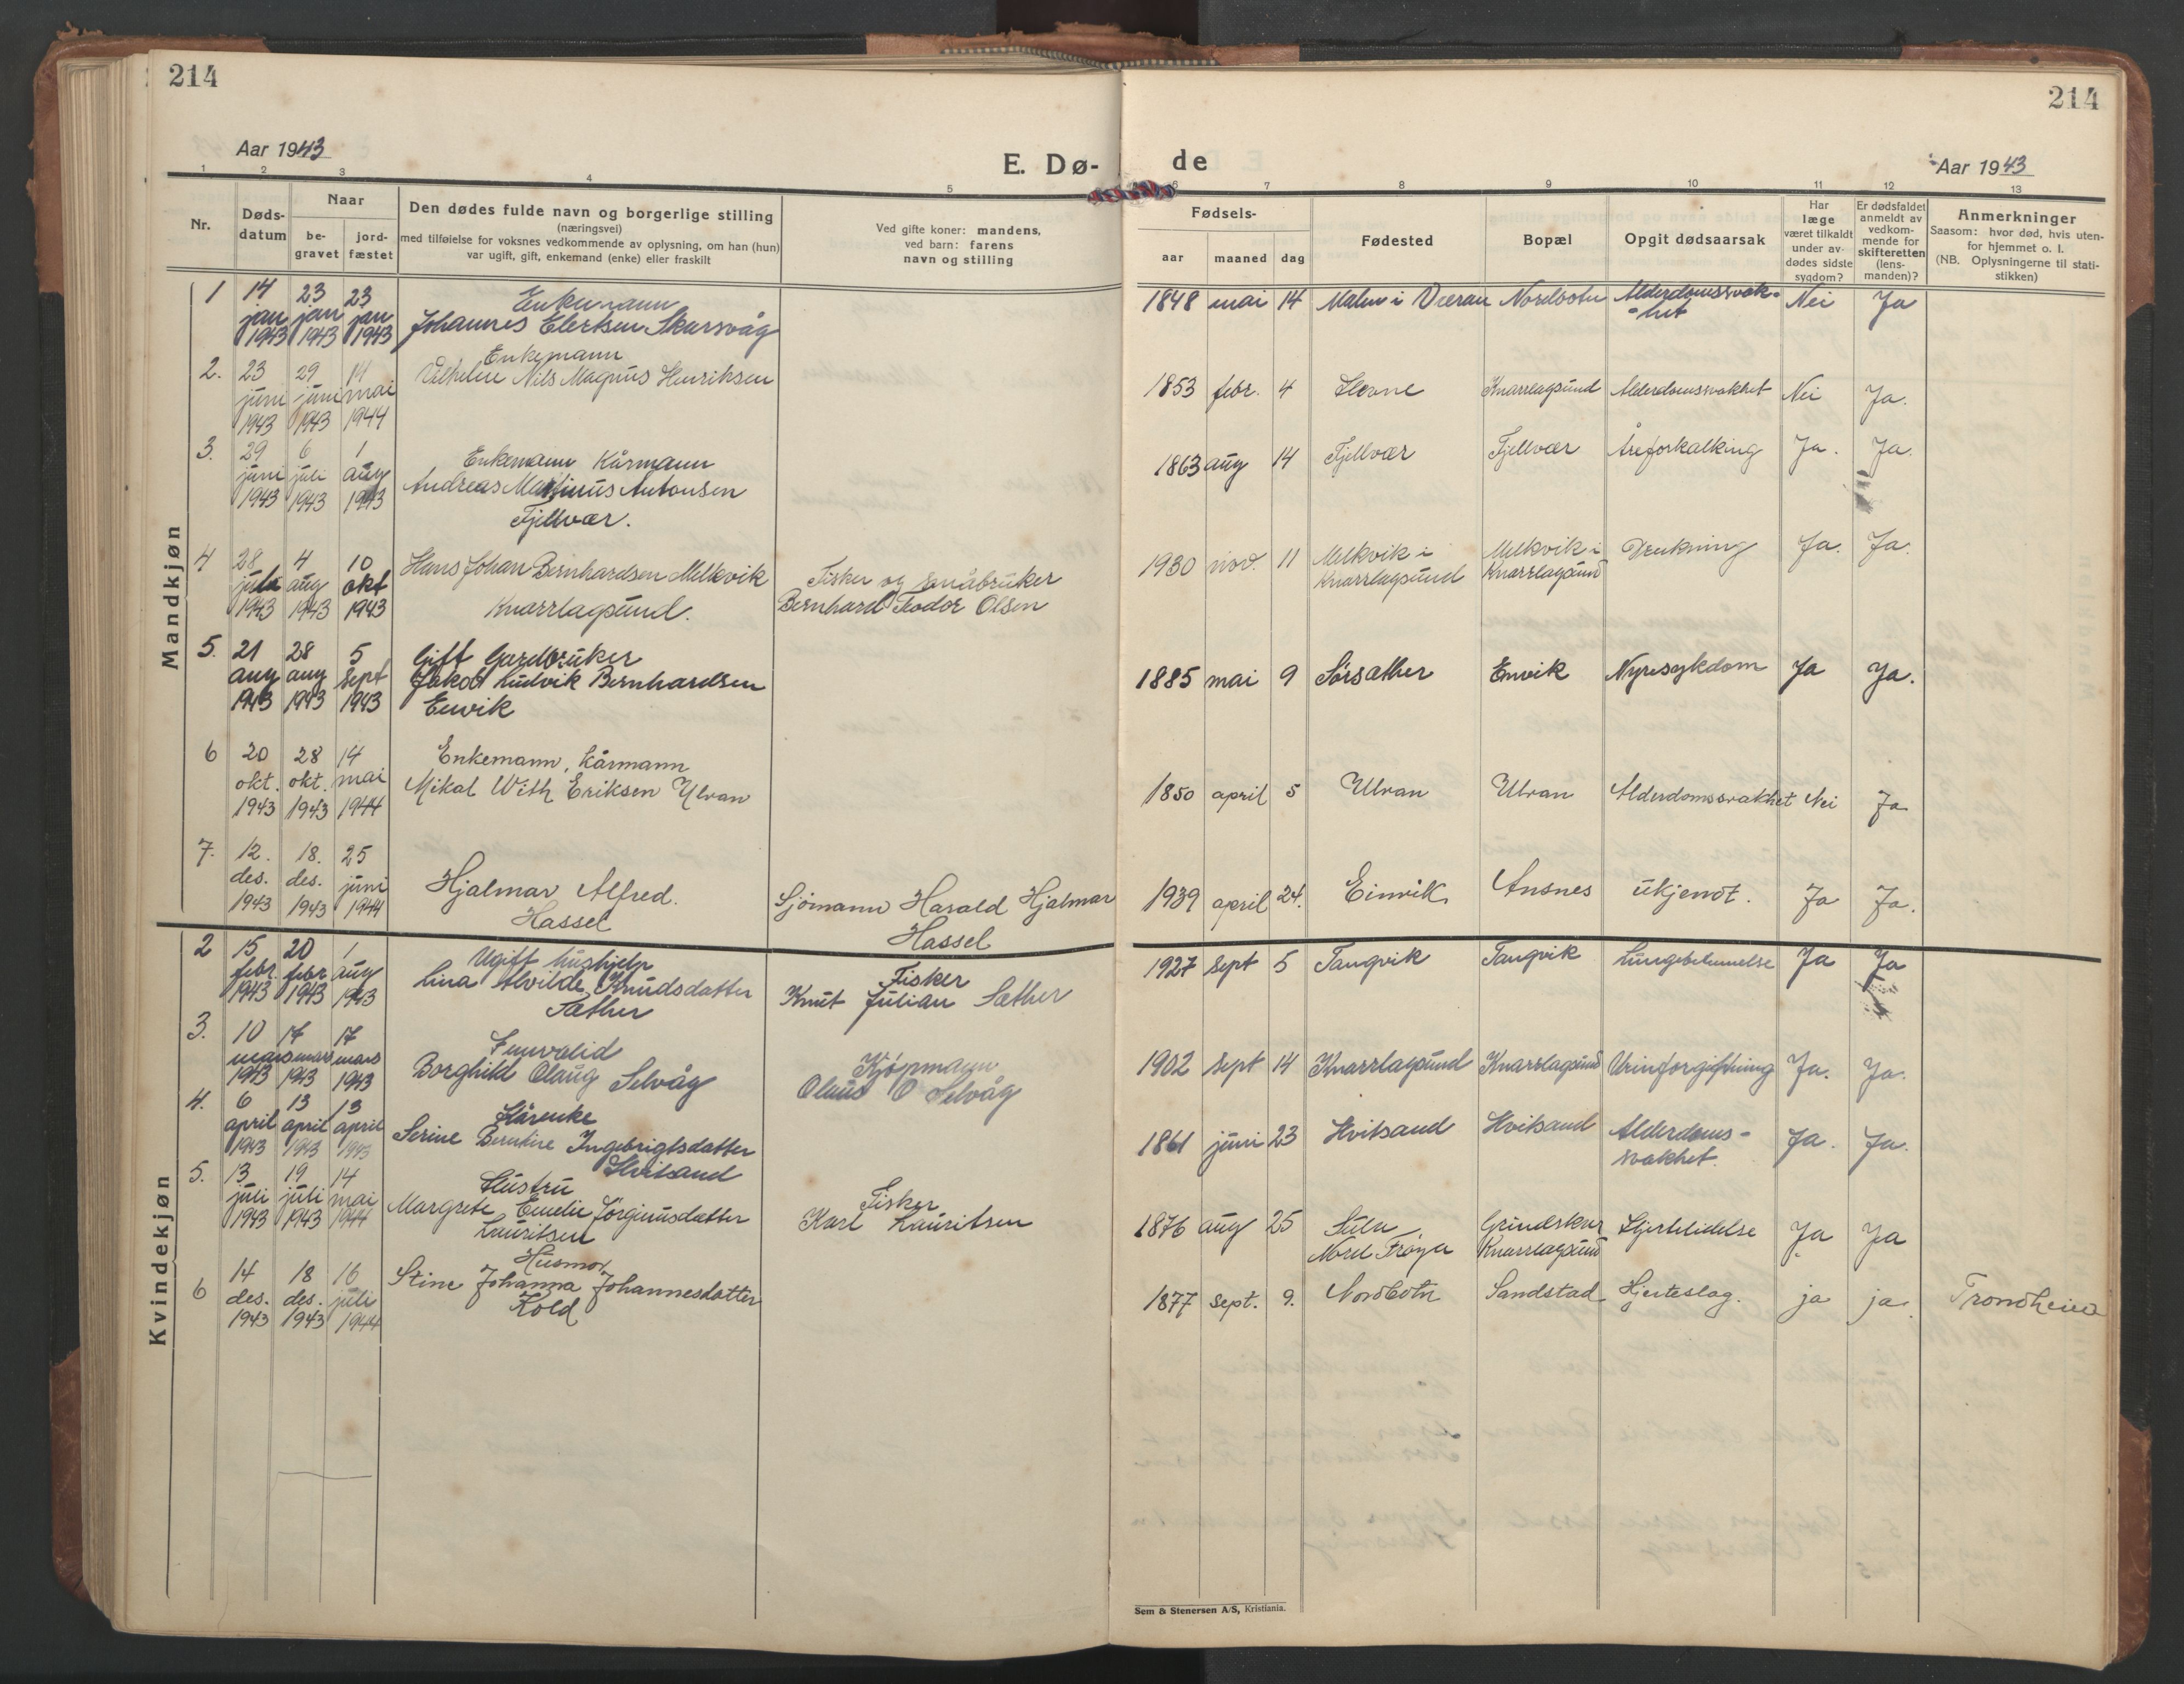 214
214
Aar 1943
E. Dø-
de
Aar 1943
1 2 3 4 5 6 7 8 9 10 11 12 13
Nr.
Døds-
datum
Naar
be-
gravet
jord-
fæstet
Den dødes fulde navn og borgerlige stilling
(næringsvei)
med tilføielse for voksnes vedkommende av oplysning, om han (hun)
var ugift, gift, enkemand (enke) eller fraskilt
Ved gifte koner: mandens,
ved barn: farens
navn og stilling
Fødsels-
aar maaned dag
Fødested
Bopæl
Opgit dødsaarsak
Har
læge
været tilkaldt
under av-
dødes sidste
sygdom?
Er dødsfaldet
anmeldt av
vedkom-
mende for
skifteretten
(lens-
manden)?
Anmerkninger
Saasom: hvor død, hvis uten-
for hjemmet o. l.
(NB. Oplysningerne til stati-
stikken)
Mandkjøn
1 14 23 23 Enkemann
jan jan jan Johannes Elertsen Skarsvåg
1943 1943 1943
1848 mai 14 Malm i Verran Nordbotn Alderdomssvak-
-het Nei Ja
2. 23 29 14 Enkemann
juni juni mai Vilhelm Nils Magnus Henriksen
1943 1943 1944
1853 febr. 4 Hevne Knarrlagsund Alderdomssvakhet Nei Ja.
3. 29 6 1 Enkemann Kårmann
juni juli aug Andreas Martinus Antonsen
1943 1943 1943 Fjellvær.
1863 aug 14 Fjellvær Fjellvær Åreforkalking Ja. Ja.
4 28 4 10 Hans Johan Bernhardsen Melkvik Fisker og småbruker
juli aug okt Knarrlagsund. Bernhard Teodor Olsen
1943 1943 1943
1930 nov. 11 Melkvik i Melkvik i Drukning Ja. Ja.
Knarrlagsund Knarrlagsund
5. 21 28 5 Gift Gardbruker
aug aug sept Jakob Ludvik Bernhardsen
1943 1943 1943 Envik
1885 mai 9 Sørsæther Envik Nyresykdom Ja Ja.
6 20 28 14 Enkemann, Kårmann
okt. okt. mai Mikal With Eriksen Ulvan
1943 1943 1944
1850 april 5 Ulvan Ulvan Alderdomssvakhet Nei Ja
7. 12. 18. 25 Hjalmar Alfred. Sjømann Harald Hjalmar
des. des. juni Hassel Hassel
1943 1943 1944
1939 april 24. Einvik Ansnes ukjendt. Ja Ja.
Kvindekjøn
2 15 20 1 Ugift hushjelp Fisker
febr. febr aug Lina Alvilde Knudsdatter Knut Julian Sæther
1943 1943 1943 Sæther
1927 sept 5 Tangvik Tangvik Lungebetennelse Ja Ja
3. 10 17 17 Innvalid Kjøpmann
mars mars mars Borghild Olaug Selvåg Olaus O Selvåg
1943 1943 1943
1902 sept 14 Knarrlagsund Knarrlagsund Urinforgiftning Ja. Ja.
4. 6 13 13 Kårenke
april april april Serine Berntine Ingebrigtsdatter
1943 1943 1943 Hvitsand
1861 juni 23 Hvitsand Hvitsand Alderdoms-
svakhet. Ja. Ja.
5. 13 19 14 Hustru Fisker
juli juli mai Margrete Emelie Jörginusdatter Karl Lauritsen
1943 1943 1944 Lauritsen
1876 aug 25 Sula Grindskar Hjertelidelse Ja Ja
Nord Frøya Knarrlagsund
6 14 18 16 Husmor
des. des. juli Stine Johanna Johannesdatter
1943 1943 1944 Kold
1877 sept. 9. Nordbotn Sandstad Hjerteslag. ja ja. Trondheim
Sem & Stenersen A/S, Kristiania.